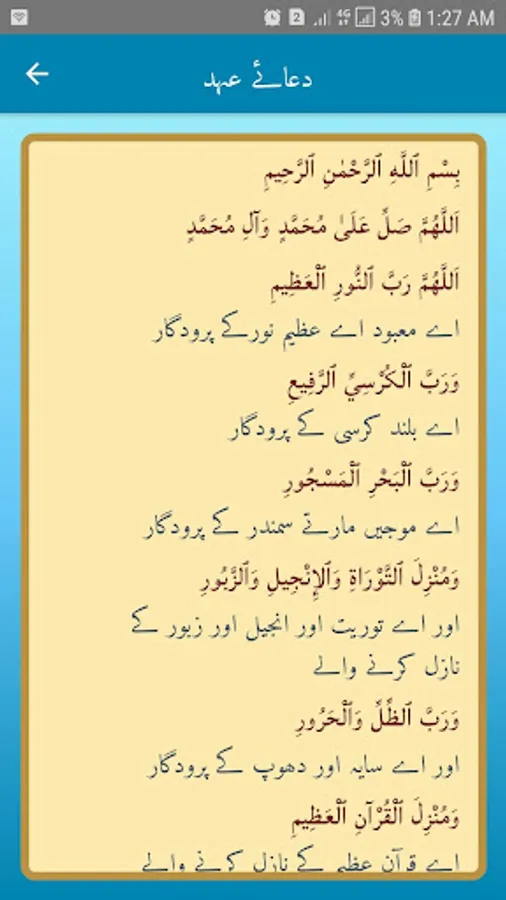 4G 3% 1:27 AM
دعائے عہد
بِسْمِ ٱللَّهِ ٱلرَّحْمٰنِ ٱلرَّحِيمِ
اَللَّهُمَّ صَلِّ عَلَىٰ مُحَمَّدٍ وَآلِ مُحَمَّدٍ
اَللَّهُمَّ رَبَّ ٱلنُّورِ ٱلْعَظِيمِ
اے معبود اے عظیم نورکے پرودگار
وَرَبَّ ٱلْكُرْسِيِّ ٱلرَّفِيعِ
اے بلند کرسی کے پرودگار
وَرَبَّ ٱلْبَحْرِ ٱلْمَسْجُورِ
اے موجیں مارتے سمندر کے پرودگار
وَمُنْزِلَ ٱلتَّوْرَاةِ وَٱلإِنْجِيلِ وَٱلزَّبُورِ
اور اے توریت اور انجیل اور زبور کے
نازل کرنے والے
وَرَبَّ ٱلظِّلِّ وَٱلْحَرُورِ
اور اے سایہ اور دھوپ کے پرودگار
وَمُنْزِلَ ٱلْقُرْآنِ ٱلْعَظِيمِ
اے قرآن عظیم کے نازل کرنے والے